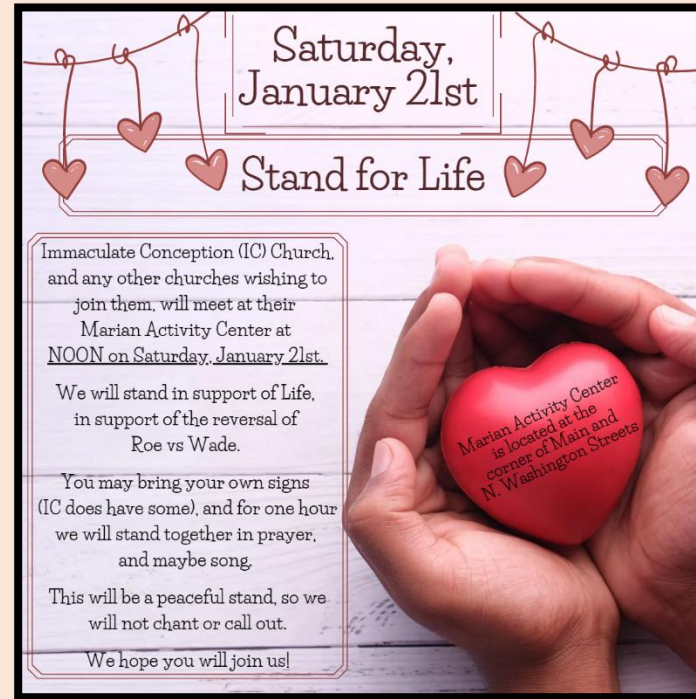 Saturday,
January 21st
Stand for Life
Immaculate Conception (IC) Church,
and any other churches wishing to
join them, will meet at their
Marian Activity Center at
NOON on Saturday, January 21st.
We will stand in support of Life,
in support of the reversal of
Roe vs Wade.
You may bring your own signs
(IC does have some), and for one hour
we will stand together in prayer,
and maybe song.
This will be a peaceful stand, so we
will not chant or call out.
We hope you will join us!
Marian Activity Center
is located at the
corner of Main and
N. Washington Streets